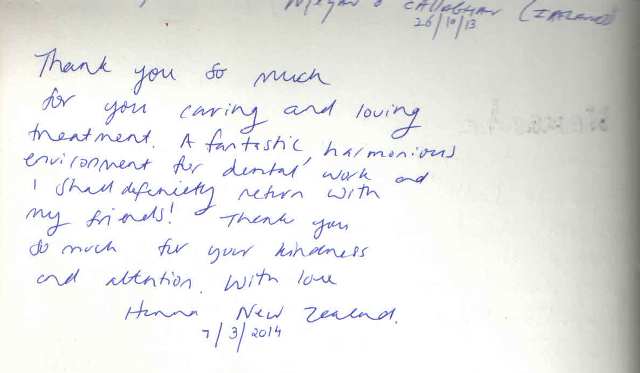 O'Callaghan (IRELAND)
26/10/13
Thank you so much
for you caring and loving
treatment. A fantastic, harmonious
environment for dental work and
I shall definietly return with
my friends! Thank you
so much for your kindness
and attention. With love
New Zealand.
7/3/2014